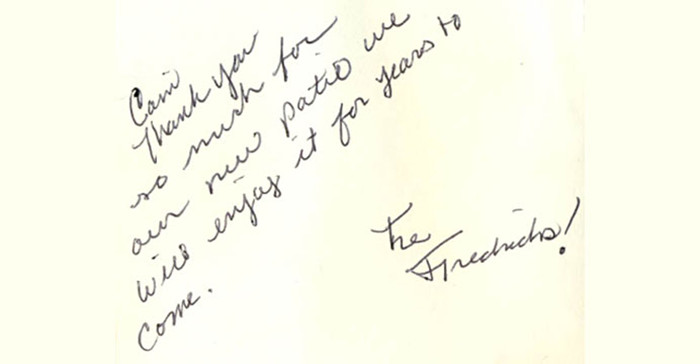 Cami
Thank you
so much for
our new patio we
will enjoy it for years to
come.
The
Fredricks!